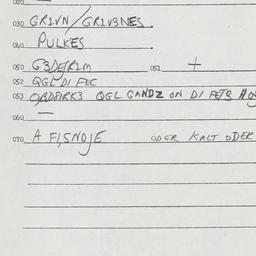 020
030 GR1VN / GR1V3NES
040 PULKES
050 G3DEJR1M 051 +
052 QGL DI FEC
053 QGL GANDZ ON DI FETS
060 —
070 A FI,SNOJE ODER KALT ODER